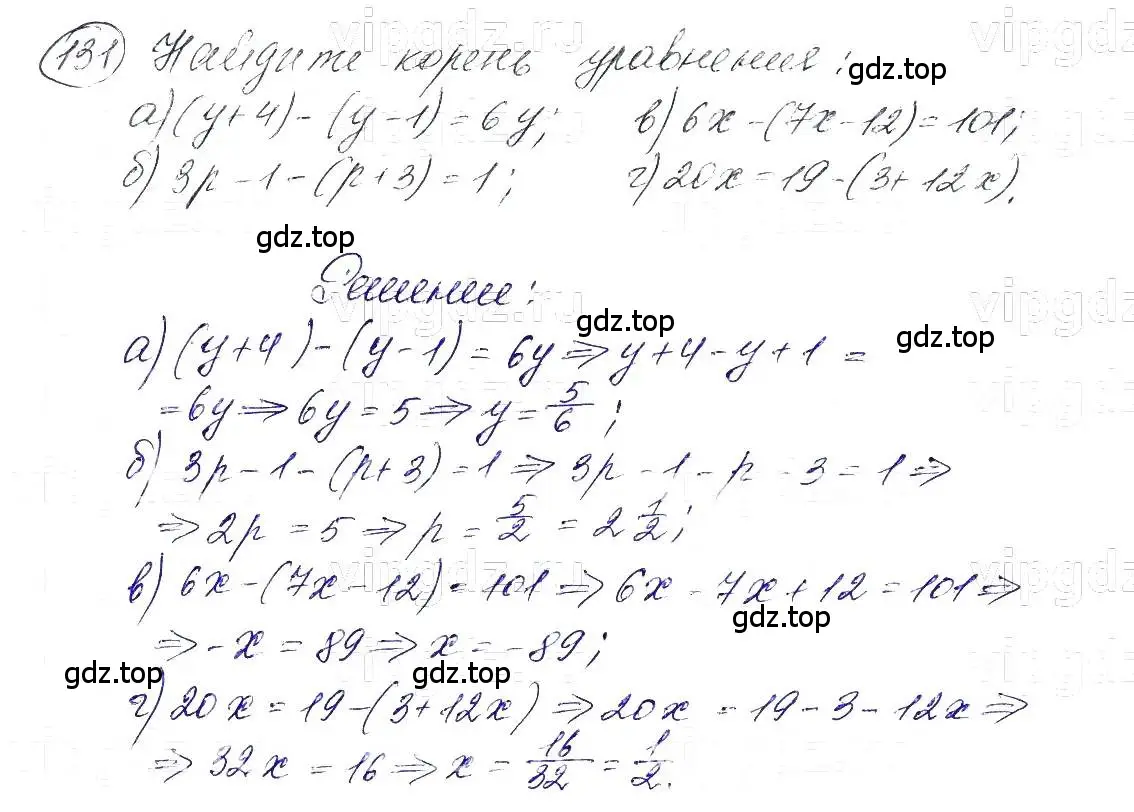 131 Найдите корень уравнения:
а) (y+4) - (y-1) = 6y; в) 6x - (7x-12) = 101;
б) 3p - 1 - (p+3) = 1; г) 20x = 19 - (3+12x).
Решение:
а) (y+4) - (y-1) = 6y ⇒ y+4-y+1 =
= 6y ⇒ 6y = 5 ⇒ y = 5/6;
б) 3p - 1 - (p+3) = 1 ⇒ 3p - 1 - p - 3 = 1 ⇒
⇒ 2p = 5 ⇒ p = 5/2 = 2 1/2;
в) 6x - (7x-12) = 101 ⇒ 6x - 7x + 12 = 101 ⇒
⇒ -x = 89 ⇒ x = -89;
г) 20x = 19 - (3+12x) ⇒ 20x = 19 - 3 - 12x ⇒
⇒ 32x = 16 ⇒ x = 16/32 = 1/2.
gdz.top
gdz.top
gdz.top
gdz.top
gdz.top
gdz.top
gdz.top
vipgdz.ru